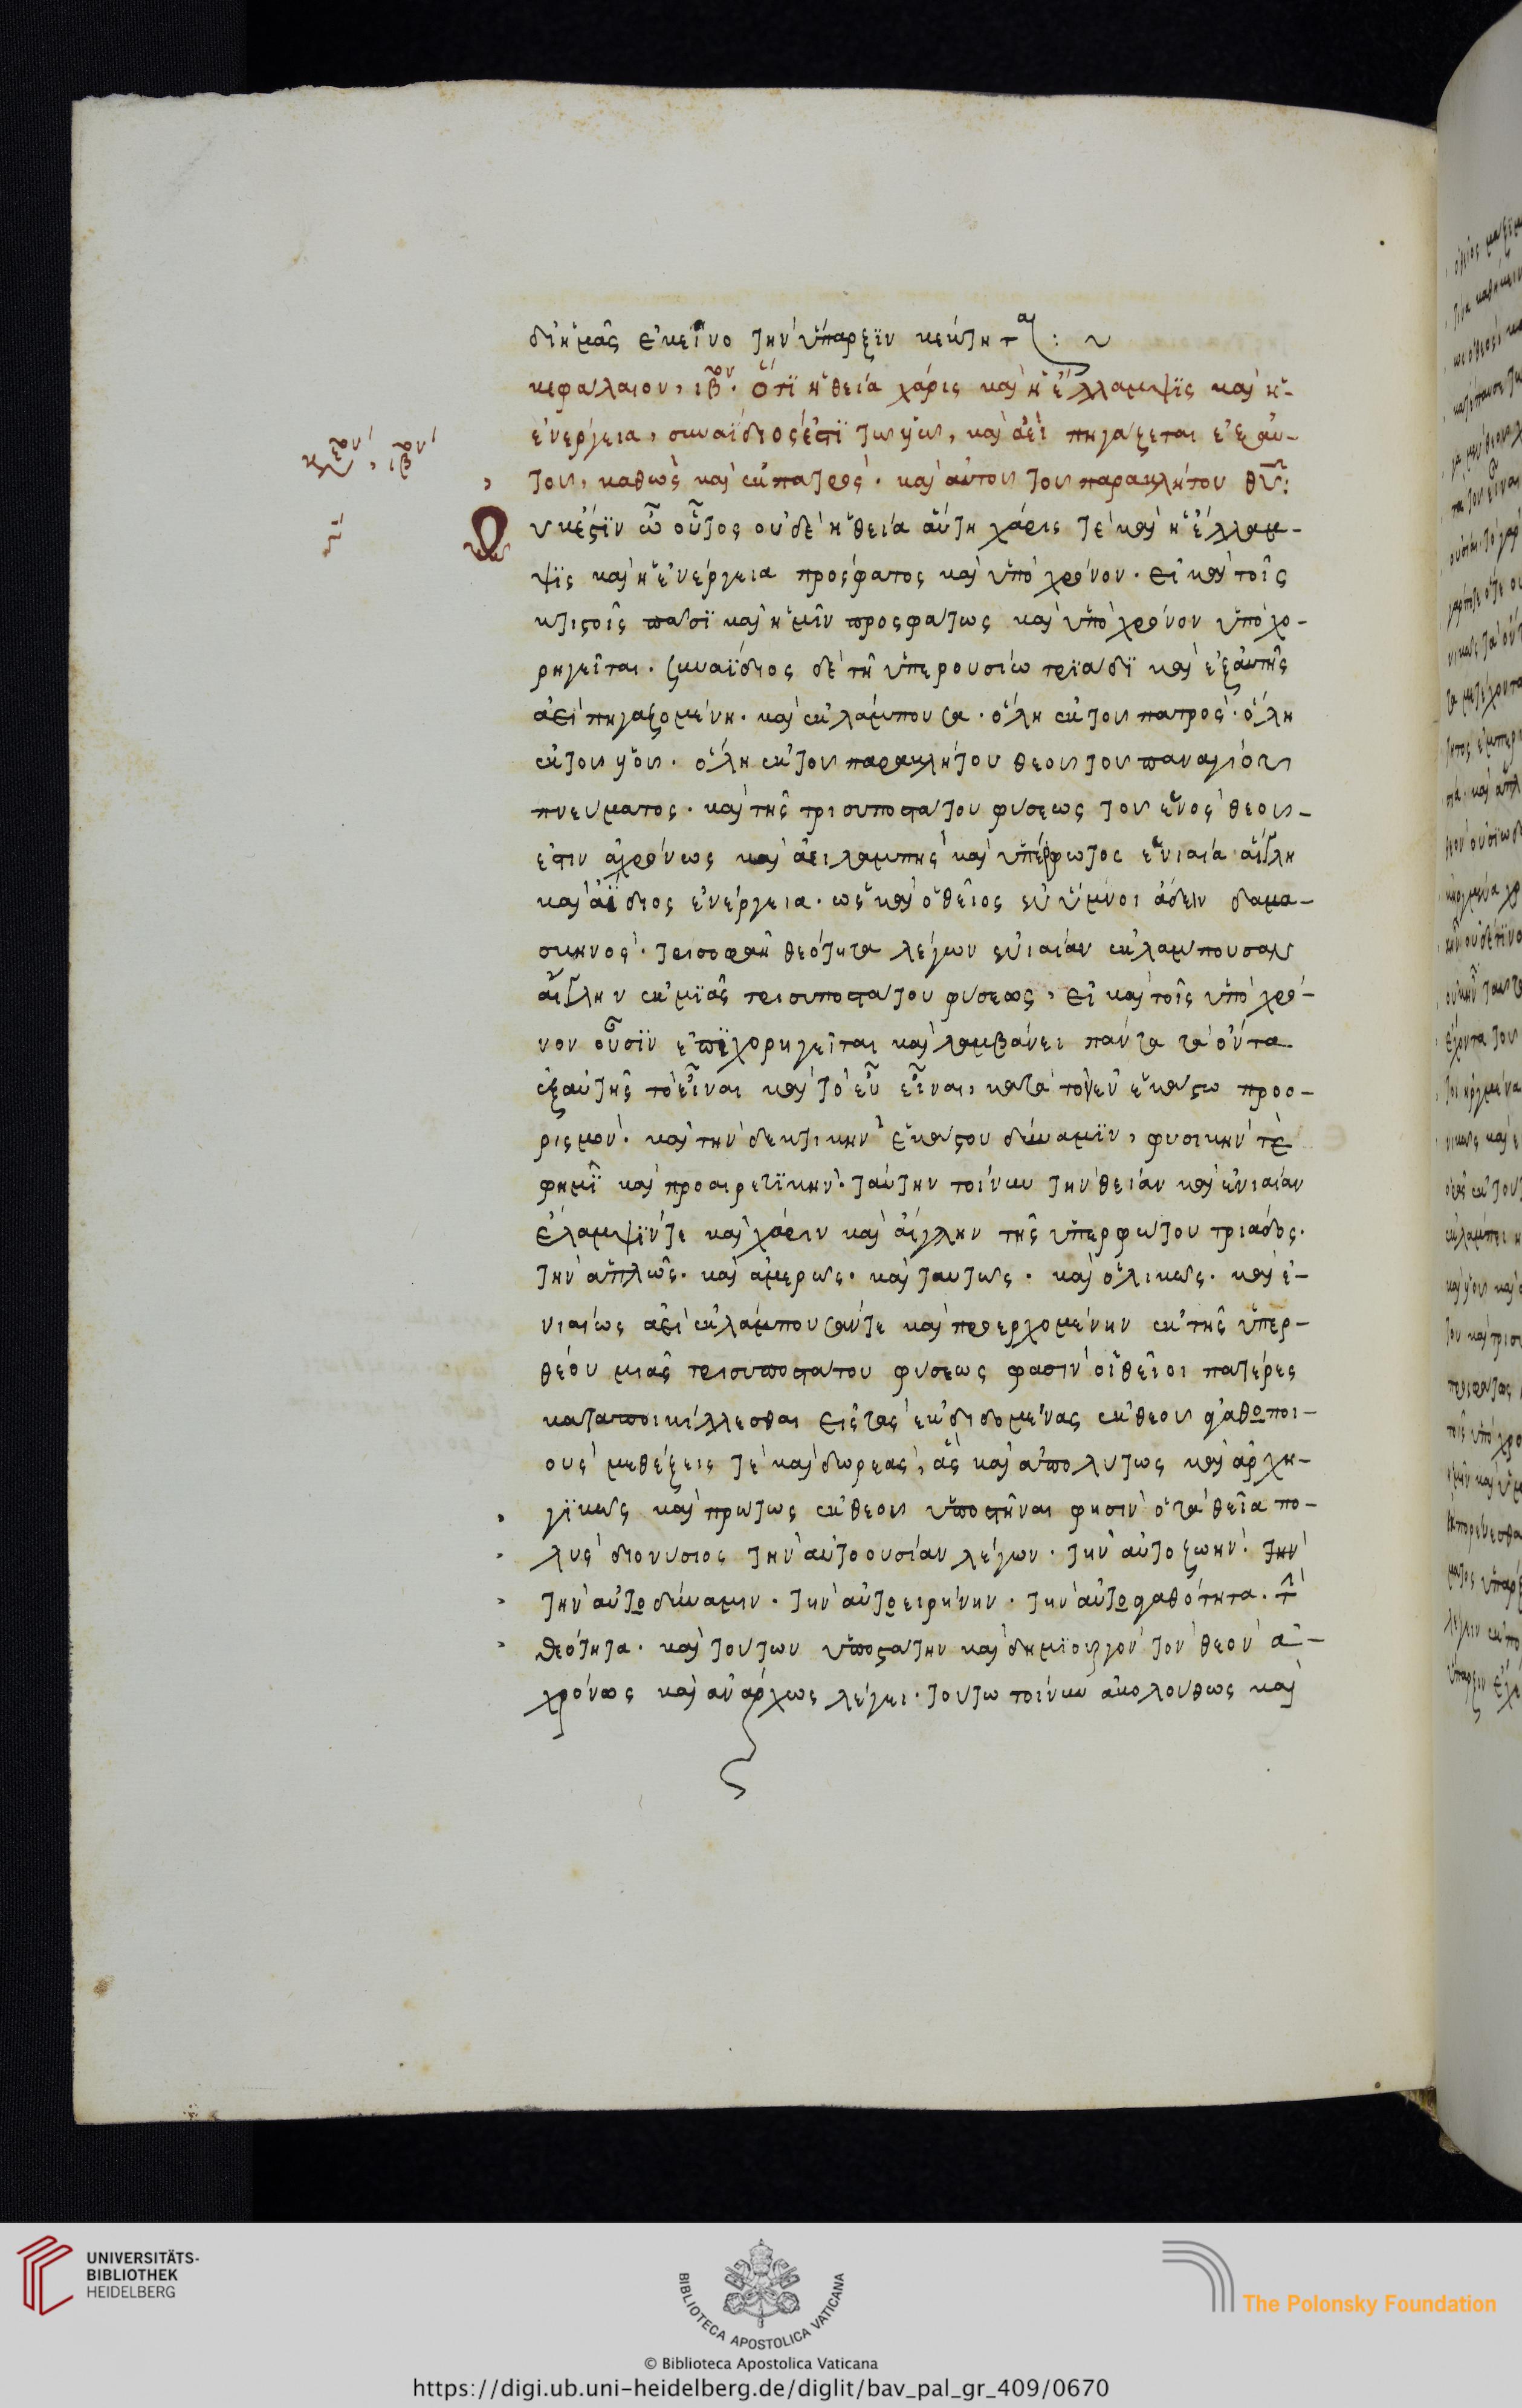 δι ἡμᾶς ἐκεῖνο τὴν ὕπαρξϊν κέκτηται: ~
κεφάλαιον, ιβον. ὅτϊ ἡ θεία χάρις καὶ ἡ ἔλλαμψϊς καὶ ἡ-
ἐνέργεια, συναΐδιος ἐστὶ τῶ υἱῶ, καὶ ἀεὶ πηγάζεται ἐξ αὐ-
τοῦ, καθὼς καὶ ἐκ πατρὸς. καὶ αὐτοῦ τοῦ παρακλήτου θυ:
Ουκέστϊν ὦ οὗτος οὐδὲ ἡ θεία αὕτη χάρις τὲ καὶ ἡ ἔλλαμ-
ψϊς καὶ ἡ ἐνέργεια πρόσφατος καὶ ὑπὸ χρόνον. εἰ καὶ τοῖς
κτιστοῖς πᾶσϊ καὶ ἡμῖν προσφάτως καὶ ὑπὸ χρόνον ὑποχο-
ρηγεῖται. συναΐδιος δὲ τῆ ὑπερουσίω τρϊάδϊ καὶ ἐξ αὐτῆς
ἀεὶ πηγαζομένη. καὶ ἐκλάμπουσα. ὅλη ἐκ τοῦ πατρὸς. ὅλη
ἐκ τοῦ υἱοῦ. ὅλη ἐκ τοῦ παρακλήτου θεοῦ τοῦ παναγίου
πνεύματος. καὶ τῆς τρισυποστάτου φύσεως τοῦ ἑνὸς θεοῦ-
ἐστιν ἀχρόνως καὶ ἀειλαμπὴς καὶ ὑπέρφωτος ἑνιαία αἴγλη
καὶ ἀΐδιος ἐνέργεια. ὡς καὶ ὁ θεῖος ἐν ὕμνοι ἄδειν δαμα-
σκηνὸς. τρισοφαῆ θεότητα λέγων ἑνιαίαν ἐκλάμπουσαν
αἴγλην ἐκ μϊᾶς τρισυποστάτου φύσεως, εἰ καὶ τοῖς ὑπὸ χρό-
νον οὖσϊν ἐπϊχορηγεῖται καὶ λαμβάνει πάντα τὰ ὄντα
ἐξ αὐτῆς τὸ εἶναι καὶ τὸ εὖ εἶναι, κατὰ τὸν ἐν ἑκάστω προο-
ρισμὸν. καὶ τὴν δεκτικὴν ἑκάστου δύναμϊν, φυσικὴν τὲ
φημῒ καὶ προαιρετϊκὴν. ταύτην τοίνυν τὴν θείαν καὶ ἑνιαίαν
ἔλαμψϊν τε καὶ χάριν καὶ αἴγλην τῆς ὑπερφώτου τριάδος.
τὴν ἁπλῶς. καὶ ἀμερῶς. καὶ ταυτῶς. καὶ ὁλικῶς. καὶ ἑ-
νιαίως ἀεὶ ἐκλάμπουσάν τε καὶ προερχομένην ἐκ τῆς ὑπερ-
θέου μιᾶς τρισυποστάτου φύσεως φασὶν οἱ θεῖοι πατέρες
καταποικίλλεσθαι εἰς τὰς ἐκδιδομένας ἐκ θεοῦ ἀγαθοποι-
οὺς μεθέξεις τὲ καὶ δωρεὰς, ἃς καὶ ἀπολύτως καὶ ἀρχη-
γϊκῶς καὶ πρώτως ἐκ θεοῦ ὑποστῆναι φησὶν ὁ τὰ θεῖα πο-
λὺς διονύσιος τὴν αὐτοουσίαν λέγων. τὴν αὐτοζωὴν. τὴν
τὴν αὐτοδύναμιν. τὴν αὐτοειρήνην. τὴν αὐτοαγαθότητα. τὴ
θεότητα. καὶ τούτων ὑποστάτην καὶ δημϊουργὸν τὸν θεὸν ἀ-
χρόνως καὶ ἀνάρχως λέγει. τούτω τοίνυν ἀκολούθως καὶ
UNIVERSITÄTS-
BIBLIOTHEK
HEIDELBERG
BIBLIOTECA APOSTOLICA VATICANA
The Polonsky Foundation
© Biblioteca Apostolica Vaticana
https://digi.ub.uni-heidelberg.de/diglit/bav_pal_gr_409/0670